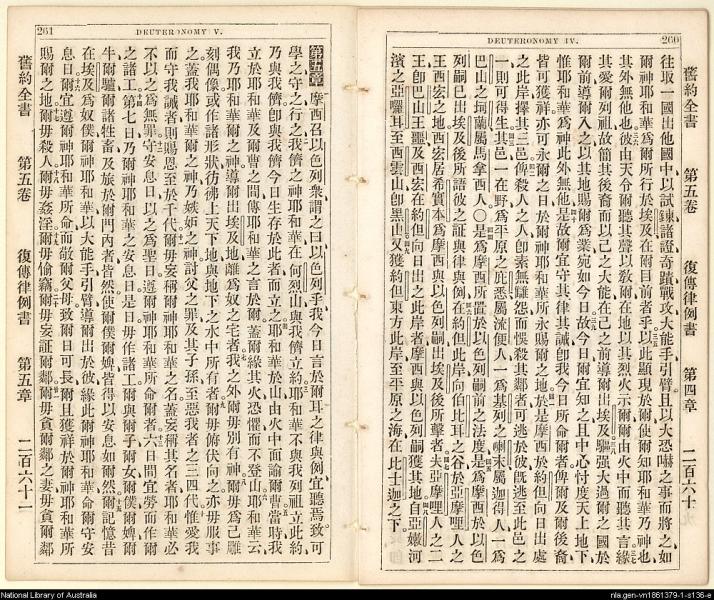 260
DEUTERONOMY IV.
舊約全書 第五卷 復傳律例書 第四章 二百六十
往取一國出他國中以試鍊諸證奇蹟戰攻大能手引臂且以大恐嚇之事而將之如
神耶和華爲爾所行於埃及在爾目前者乎以此顯現於爾使爾知耶和華乃神也
其外無他也彼由天令爾聽其聲以敎爾在地以其烈火示爾爾由火中而聽其言緣
其愛爾列祖故簡其後裔而以己之大能在己之前導爾出埃及驅強大過爾之國於
爾前導爾入之以其地賜爾爲業宛如今日故今日爾宜知之且中心忖度天上地下
惟耶和華爲神此外無他是故爾宜守其律其誡卽我今日所命爾者俾爾及爾後裔
皆可獲祥亦可永爾之日於爾神耶和華所永賜爾之地於是摩西於約但向日出處
之此岸擇其三邑俾殺人之人卽素無讎怨而悞殺其鄰者可逃於彼旣逃至此邑之
一則可得生其邑一在野爲平原之比悉屬流便人一爲基列之喇末屬迦得人一爲
巴山之坷蘭屬馬拿西人〇是爲摩西所置於以色列嗣前之法度是爲摩西於以色
列嗣已出埃及後所語彼之証與律與例在約但此岸向伯比耳之谷於亞摩哩人之
王西宏之地西宏居希實本爲摩西與以色列嗣出埃及後所擊者夫亞摩哩人之二
王卽巴山王噩及西宏在約但向日出之此岸者摩西與以色列嗣獲其地自亞嫩河
濱之亞囉耳至西雲山卽黑山又獲約但東方此岸至平原之海在比士迦之下
261
DEUTERONOMY V.
第五章 摩西召以色列衆謂之曰以色列乎我今日言於爾耳之律與例宜聽焉致可
學之守之行之我儕之神耶和華在何烈山與我儕立約耶和華不與我列祖立此約
乃與我儕卽與我儕今日生存於此者而立之耶和華於山由火中面諭爾曹當時我
立於耶和華及爾曹之間傳耶和華之言於爾蓋爾緣其火恐懼而不登山耶和華云
我乃耶和華爾之神導爾出埃及地離爲奴之宅者我之外爾毋別有神爾毋爲己雕
刻偶像或作諸形狀彷彿上天下地與地下之水中所有者爾毋俯伏向之亦毋服事
之蓋我耶和華爾之神乃嫉妒之神討父之罪及其子孫至惡我者之三四代惟愛我
而守我誡者則賜恩至於千代爾毋妄稱爾神耶和華之名蓋妄稱其名者耶和華必
不以之爲無罪守安息日以之爲聖日遵爾神耶和華所命爾者六日間宜勞而作爾
之諸工第七日乃爾神耶和華之安息日是日毋作諸工爾與爾子爾女爾僕爾婢爾
牛爾驢爾諸牲畜及旅於爾門內者皆然使爾僕爾婢皆得以安息如爾然爾記憶昔
在埃及爲奴僕爾神耶和華以大能手引臂導爾出於彼緣此爾神耶和華命爾守安
息日爾宜遵爾神耶和華所命而敬爾父母致爾日可長爾且獲祥於爾神耶和華所
賜爾之地爾毋殺人爾毋姦淫爾毋偷竊爾毋妄証爾鄰爾毋貪爾鄰之妻毋貪爾鄰
舊約全書 第五卷 復傳律例書 第五章 二百六十一
National Library of Australia
nla.gen-vn1861379-1-s136-e